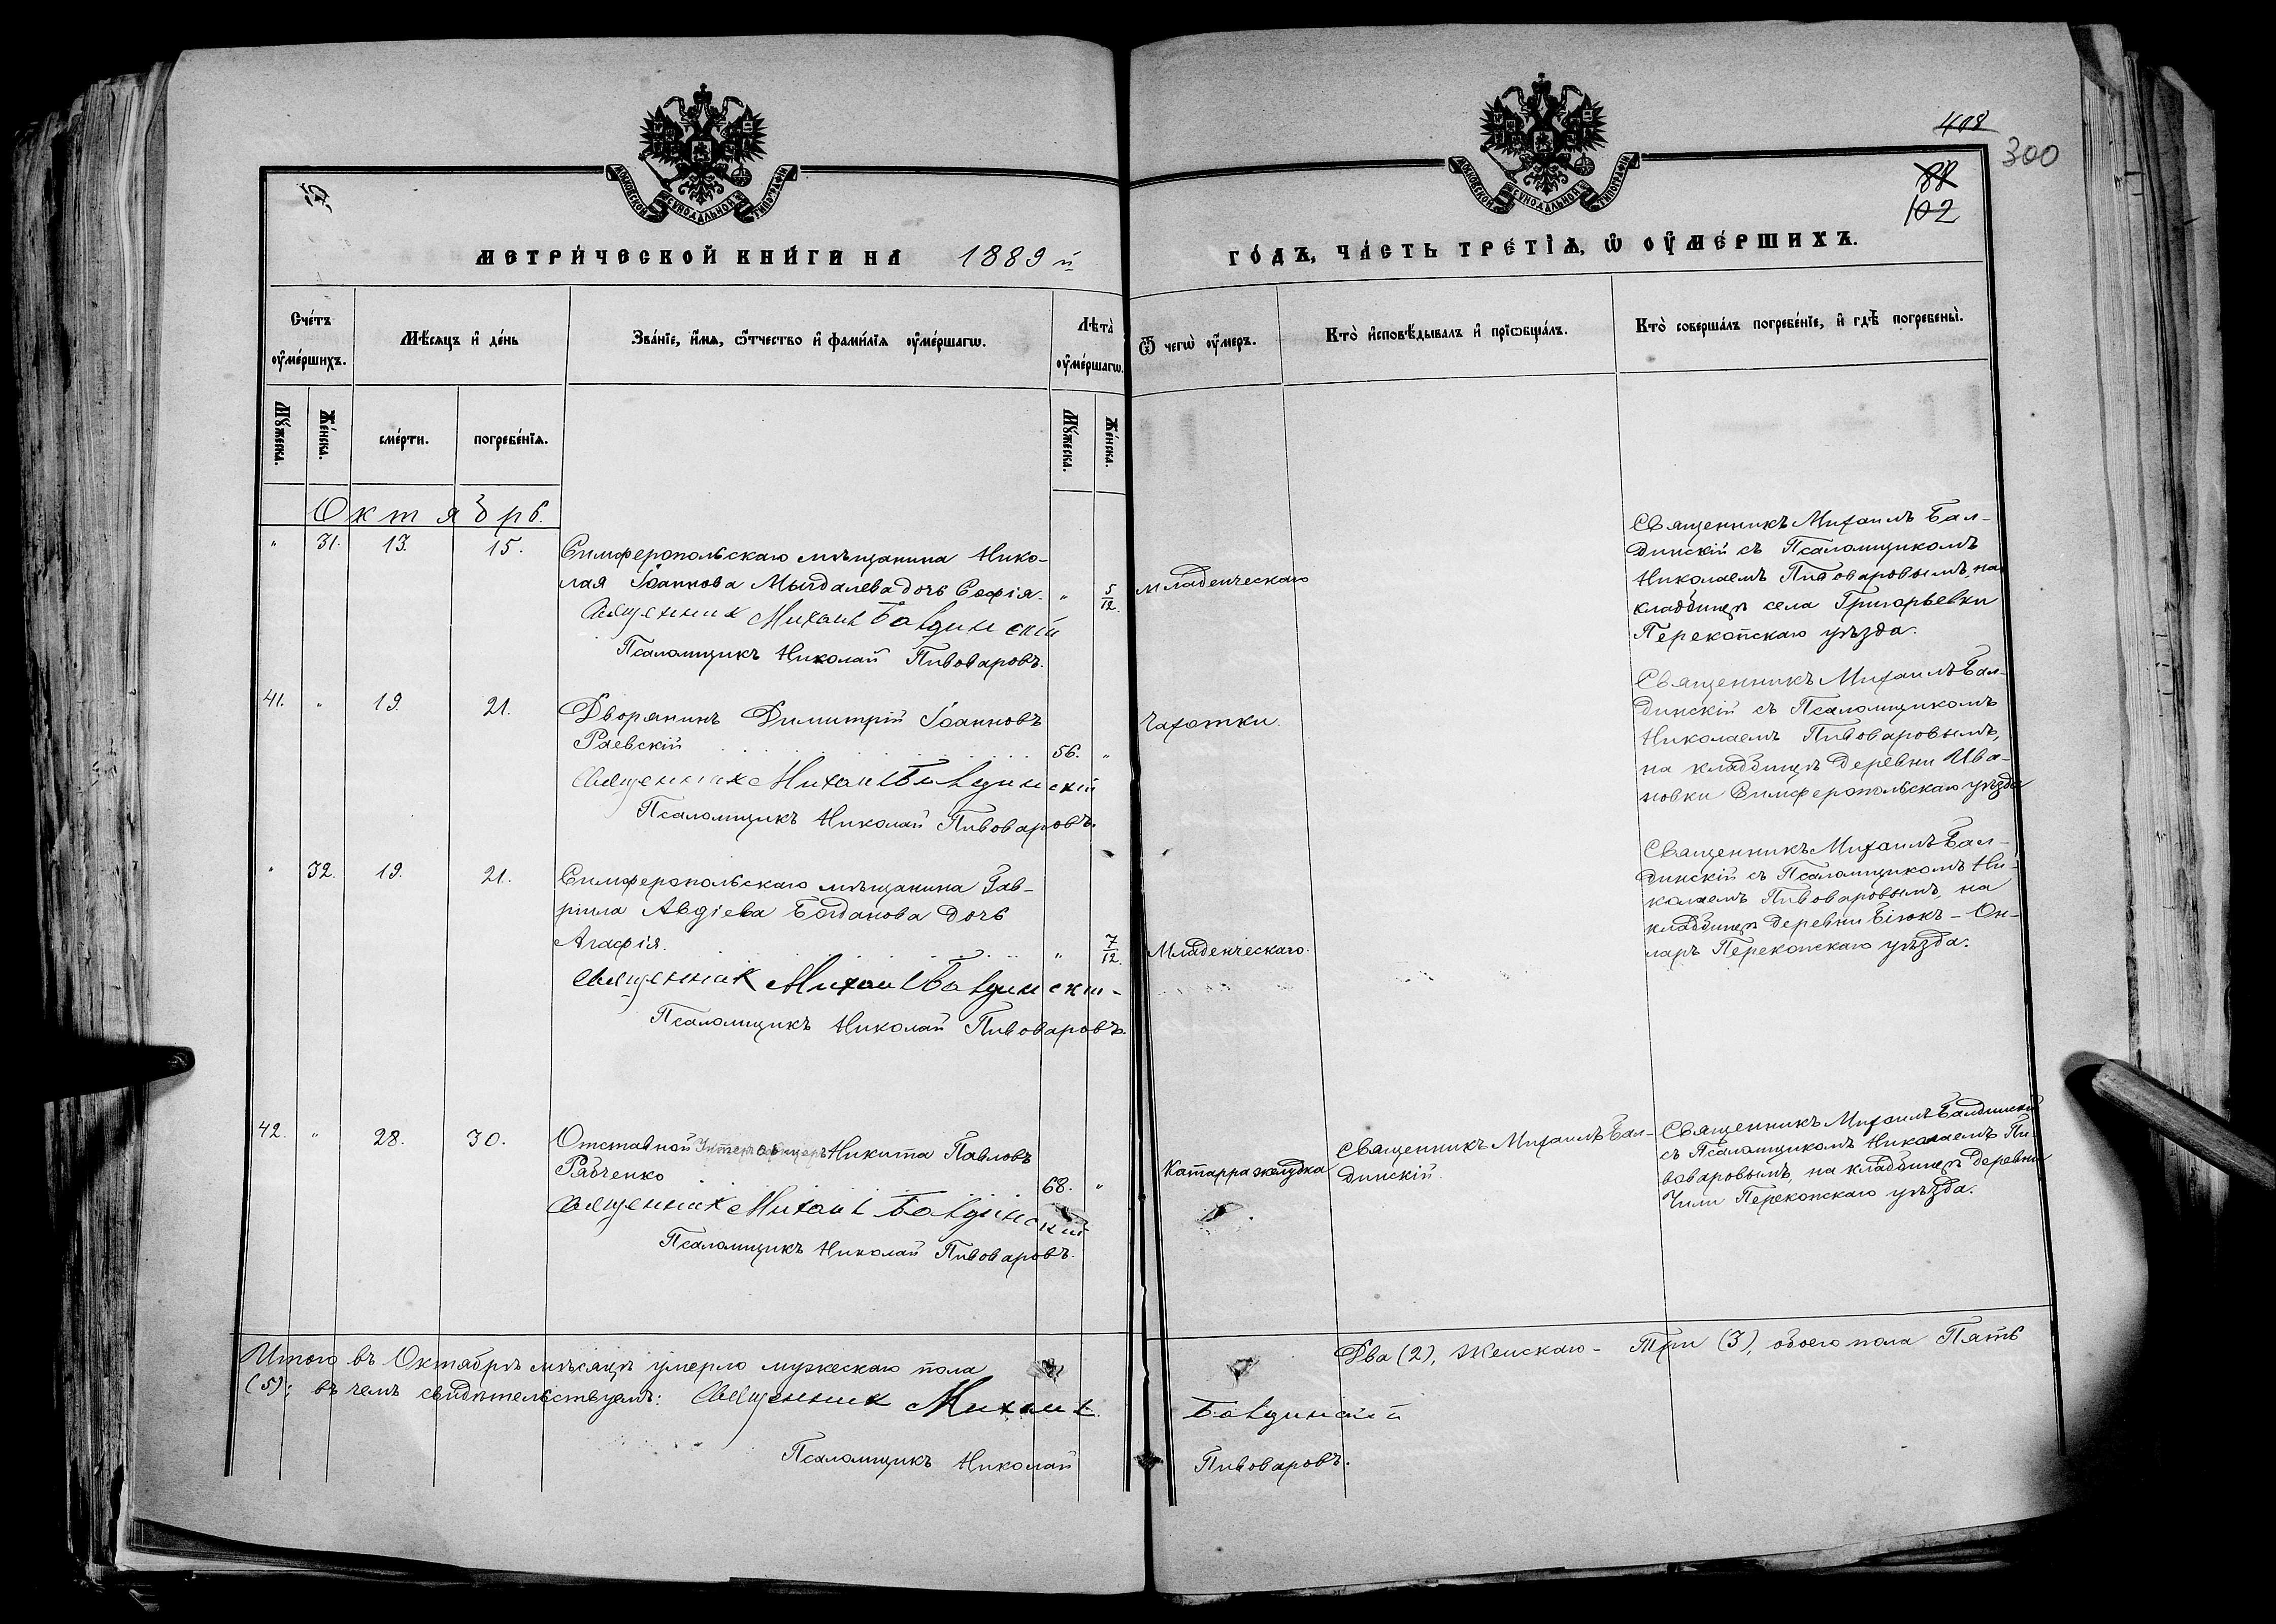 408
300
88
102
МОСКОВСКОЙ СѴНОДАЛЬНОЙ ТИПОГРАФІИ
МОСКОВСКОЙ СѴНОДАЛЬНОЙ ТИПОГРАФІИ
МЕТРИ́ЧЕСКОЙ КНИ́ГИ НА 1889 й
ГО́ДЪ, ЧА́СТЬ ТРЕ́ТІѦ, Ѡ҆ ОУ҆МЕ́РШИХЪ.
Сче́тъ оу҆ме́ршихъ.
Мѣ́сѧцъ и҆ де́нь
Зва́нїе, и҆́мѧ, ѻ҆́тчество и҆ фамѝлїѧ оу҆ме́ршагѡ.
Лѣ́та оу҆ме́ршагѡ.
Ѿ чегѡ̀ оу҆́меръ.
Кто̀ и҆сповѣ́дывалъ и҆ прїѡбща́лъ.
Кто̀ соверша́лъ погребе́нїе, и҆ гдѣ̀ погребены̀.
Мꙋ́жеска.
Же́нска.
сме́рти.
погребе́нїѧ.
Мꙋ́жеска.
Же́нска.
Октябрь.
" 31. 13. 15. Симферопольскаго мѣщанина Нико-
лая Іоаннова Мындалева дочь Софія. " 5/12. Младенческаго
Священник Михаил Балдинскій
Псаломщикъ Николай Пивоваровъ.
Священникъ Михаилъ Бал-
динскій съ Псаломщикомъ
Николаемъ Пивоваровымъ, на
кладбищѣ села Григорьевки
Перекопскаго уѣзда.
41. " 19. 21. Дворянинъ Димитрій Іоанновъ
Раевскій 56. " Чахотки.
Священник Михаил Балдинскій
Псаломщикъ Николай Пивоваровъ.
Священникъ Михаилъ Бал-
динскій съ Псаломщикомъ
Николаемъ Пивоваровымъ,
на кладбищѣ деревни Ива-
новки Симферопольскаго уѣзда
" 32. 19. 21. Симферопольскаго мѣщанина Гав-
ріила Авдіева Богданова дочь
Агафія. " 7/12. Младенческаго.
Священник Михаил Балдинскій
Псаломщикъ Николай Пивоваровъ.
Священникъ Михаилъ Бал-
динскій съ Псаломщикомъ Ни-
колаемъ Пивоваровымъ, на
кладбищѣ деревни Біюкъ-Он-
ларъ Перекопскаго уѣзда.
42. " 28. 30. Отставной Унтеръ-офицеръ Никита Павловъ
Рябченко 68. " Катарра желудка
Священник Михаил Балдинскій
Псаломщикъ Николай Пивоваровъ.
Священникъ Михаилъ Бал-
динскій.
Священникъ Михаилъ Балдинскій
съ Псаломщикомъ Николаемъ Пи-
воваровымъ, на кладбищѣ деревни
Чили Перекопскаго уѣзда.
Итого въ Октябрѣ мѣсяцѣ умерло мужескаго пола Два (2), Женскаго - Три (3), обоего пола Пять
(5); въ чемъ свидѣтельствуемъ: Священник Михаил Балдинскій
Псаломщикъ Николай Пивоваровъ.